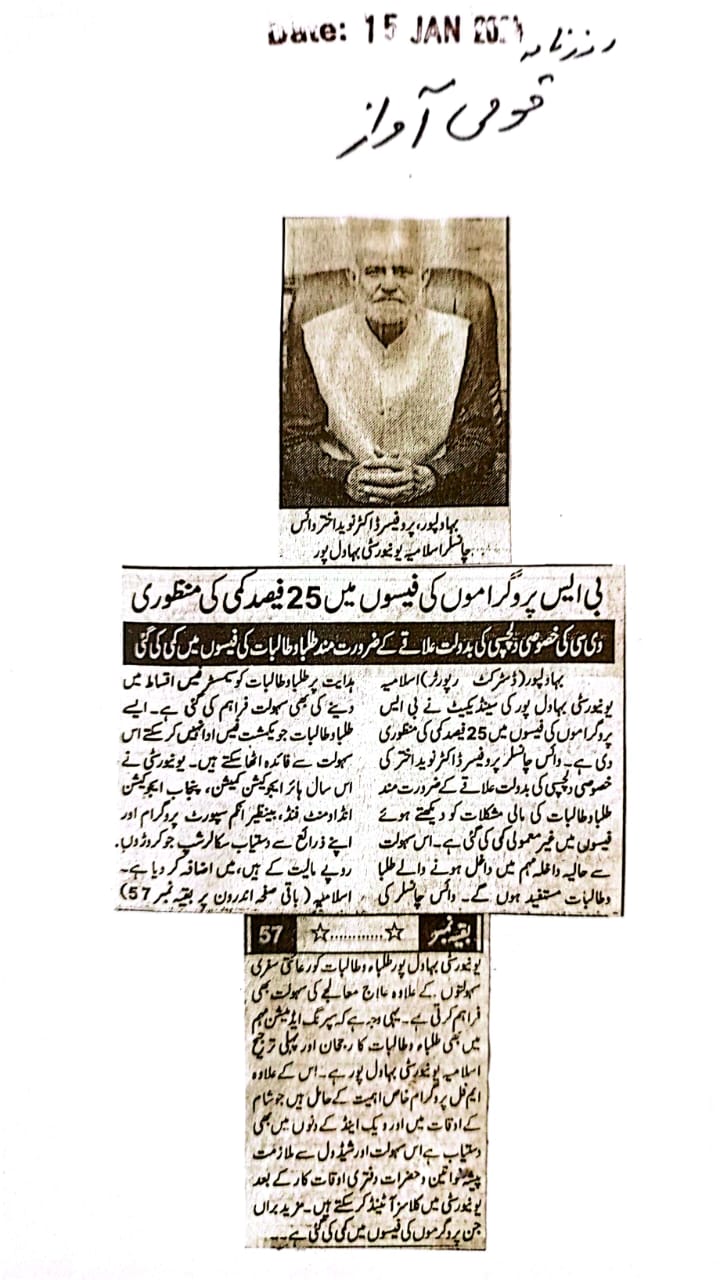 Date: 15 JAN 202
روزنامہ
قومی آواز
بہاولپور، پروفیسر ڈاکٹر نوید اختر وائس
چانسلر اسلامیہ یونیورسٹی بہاول پور
بی ایس پروگراموں کی فیسوں میں 25 فیصد کمی کی منظوری
وی سی کی خصوصی دلچسپی کی بدولت علاقے کے ضرورت مند طلبا و طالبات کی فیسوں میں کمی کی گئی
بہاولپور (ڈسٹرکٹ رپورٹر) اسلامیہ
یونیورسٹی بہاول پور کی سینڈیکیٹ نے بی ایس
پروگراموں کی فیسوں میں 25 فیصد کمی کی منظوری
دی ہے۔ وائس چانسلر پروفیسر ڈاکٹر نوید اختر کی
خصوصی دلچسپی کی بدولت علاقے کے ضرورت مند
طلبا و طالبات کی مالی مشکلات کو دیکھتے ہوئے
فیسوں میں غیر معمولی کمی کی گئی ہے۔ اس سہولت
سے حالیہ داخلہ مہم میں داخل ہونے والے طلبا
و طالبات مستفید ہوں گے۔ وائس چانسلر کی
ہدایت پر طلبا و طالبات کو سمسٹر فیس اقساط میں
دینے کی بھی سہولت فراہم کی گئی ہے۔ ایسے
طلبا و طالبات جو یکمشت فیس ادا نہیں کر سکتے اس
سہولت سے فائدہ اٹھا سکتے ہیں۔ یونیورسٹی نے
اس سال ہائر ایجوکیشن کمیشن، پنجاب ایجوکیشن
انڈاومنٹ فنڈ، بینظیر انکم سپورٹ پروگرام اور
اپنے ذرائع سے دستیاب سکالرشپ جو کروڑوں
روپے مالیت کے ہیں، میں اضافہ کر دیا ہے۔
اسلامیہ (باقی صفحہ اندرون پر بقیہ نمبر 57)
بقیہ نمبر ☆............☆ 57
یونیورسٹی بہاول پور طلباء و طالبات کو رعائتی سفری
سہولتوں کے علاوہ علاج معالجے کی سہولت بھی
فراہم کرتی ہے۔ یہی وجہ ہے کہ سپرنگ ایڈمیشن مہم
میں بھی طلباء و طالبات کا رجحان اور پہلی ترجیح
اسلامیہ یونیورسٹی بہاول پور ہے۔ اس کے علاوہ
ایم فل پروگرام خاص اہمیت کے حامل ہیں جو شام
کے اوقات میں اور ویک اینڈ کے دنوں میں بھی
دستیاب ہے اس سہولت اور شیڈول سے ملازمت
پیشہ خواتین و حضرات دفتری اوقات کار کے بعد
یونیورسٹی میں کلاسز آٹینڈ کر سکتے ہیں۔ مزید براں
جن پروگرموں کی فیسوں میں کمی کی گئی ہے۔۔